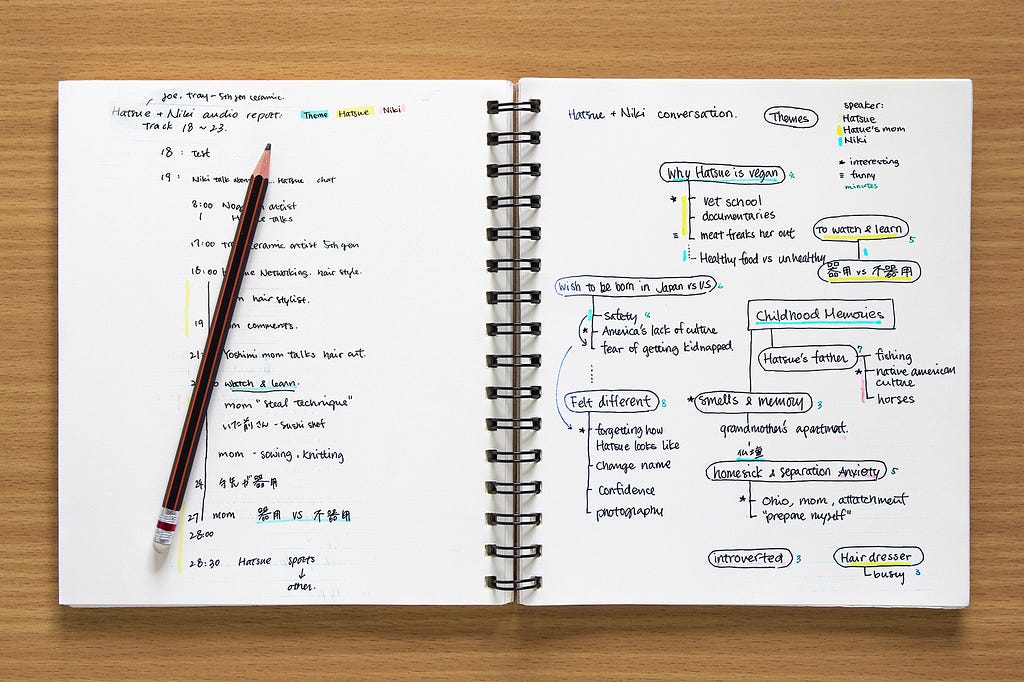 Joe, Troy - 5th gen ceramic.
Hatsue + Niki audio report: Theme Hatsue Niki
Track 18 ~ 23.
18 : Test
19 : Niki talk Hatsue chat
8:00 artist
talks
17:00 ceramic artist 5th gen
18:00 Networking. hair style.
hair stylist.
19 comments.
Yoshimi mom talks hair cut.
watch & learn.
mom "steal technique"
いた前さん - sushi chef
mom - sewing . knitting
24 手先が器用
27 mom 器用 vs 不器用
28:00
28:30 Hatsue sports
↓
other.
Hatsue + Niki conversation.
Themes
speaker:
Hatsue
Hatue's mom
Niki
* interesting
≡ funny
minutes
Why Hatsue is vegan
* Vet school
documentaries
≡ meat freaks her out
Healthy food vs unhealthy
To watch & learn 5
器用 vs 不器用
Wish to be born in Japan vs US
Safety
* America's lack of culture
fear of getting kidnapped
Childhood Memories
Hatsue's father 7
fishing
* native american
culture
horses
Felt different 8
* forgetting how
Hatsue looks like
Change name
Confidence
photography
* Smells & memory 3
grandmother's apartment.
仏壇
homesick & separation Anxiety 5
* Ohio, mom, attatchment
"prepare myself"
introverted 3
Hair dresser
busy 3